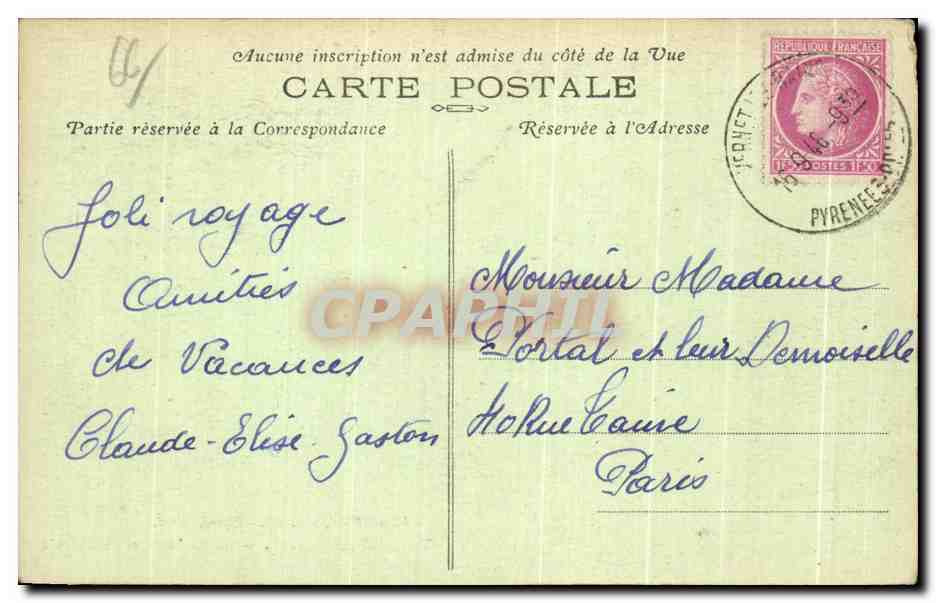 66/
Aucune inscription n'est admise du côté de la Vue
CARTE POSTALE
Partie réservée à la Correspondance
Réservée à l'Adresse
REPUBLIQUE FRANÇAISE
1F50 POSTES 1F50
VERNET
PYRENEES-ORLES
Joli voyage
Amitiés
de Vacances
Claude-Elise-Gaston
Monsieur Madame
Portal et leur Demoiselle
40 Rue Taine
Paris
CPAPHIL